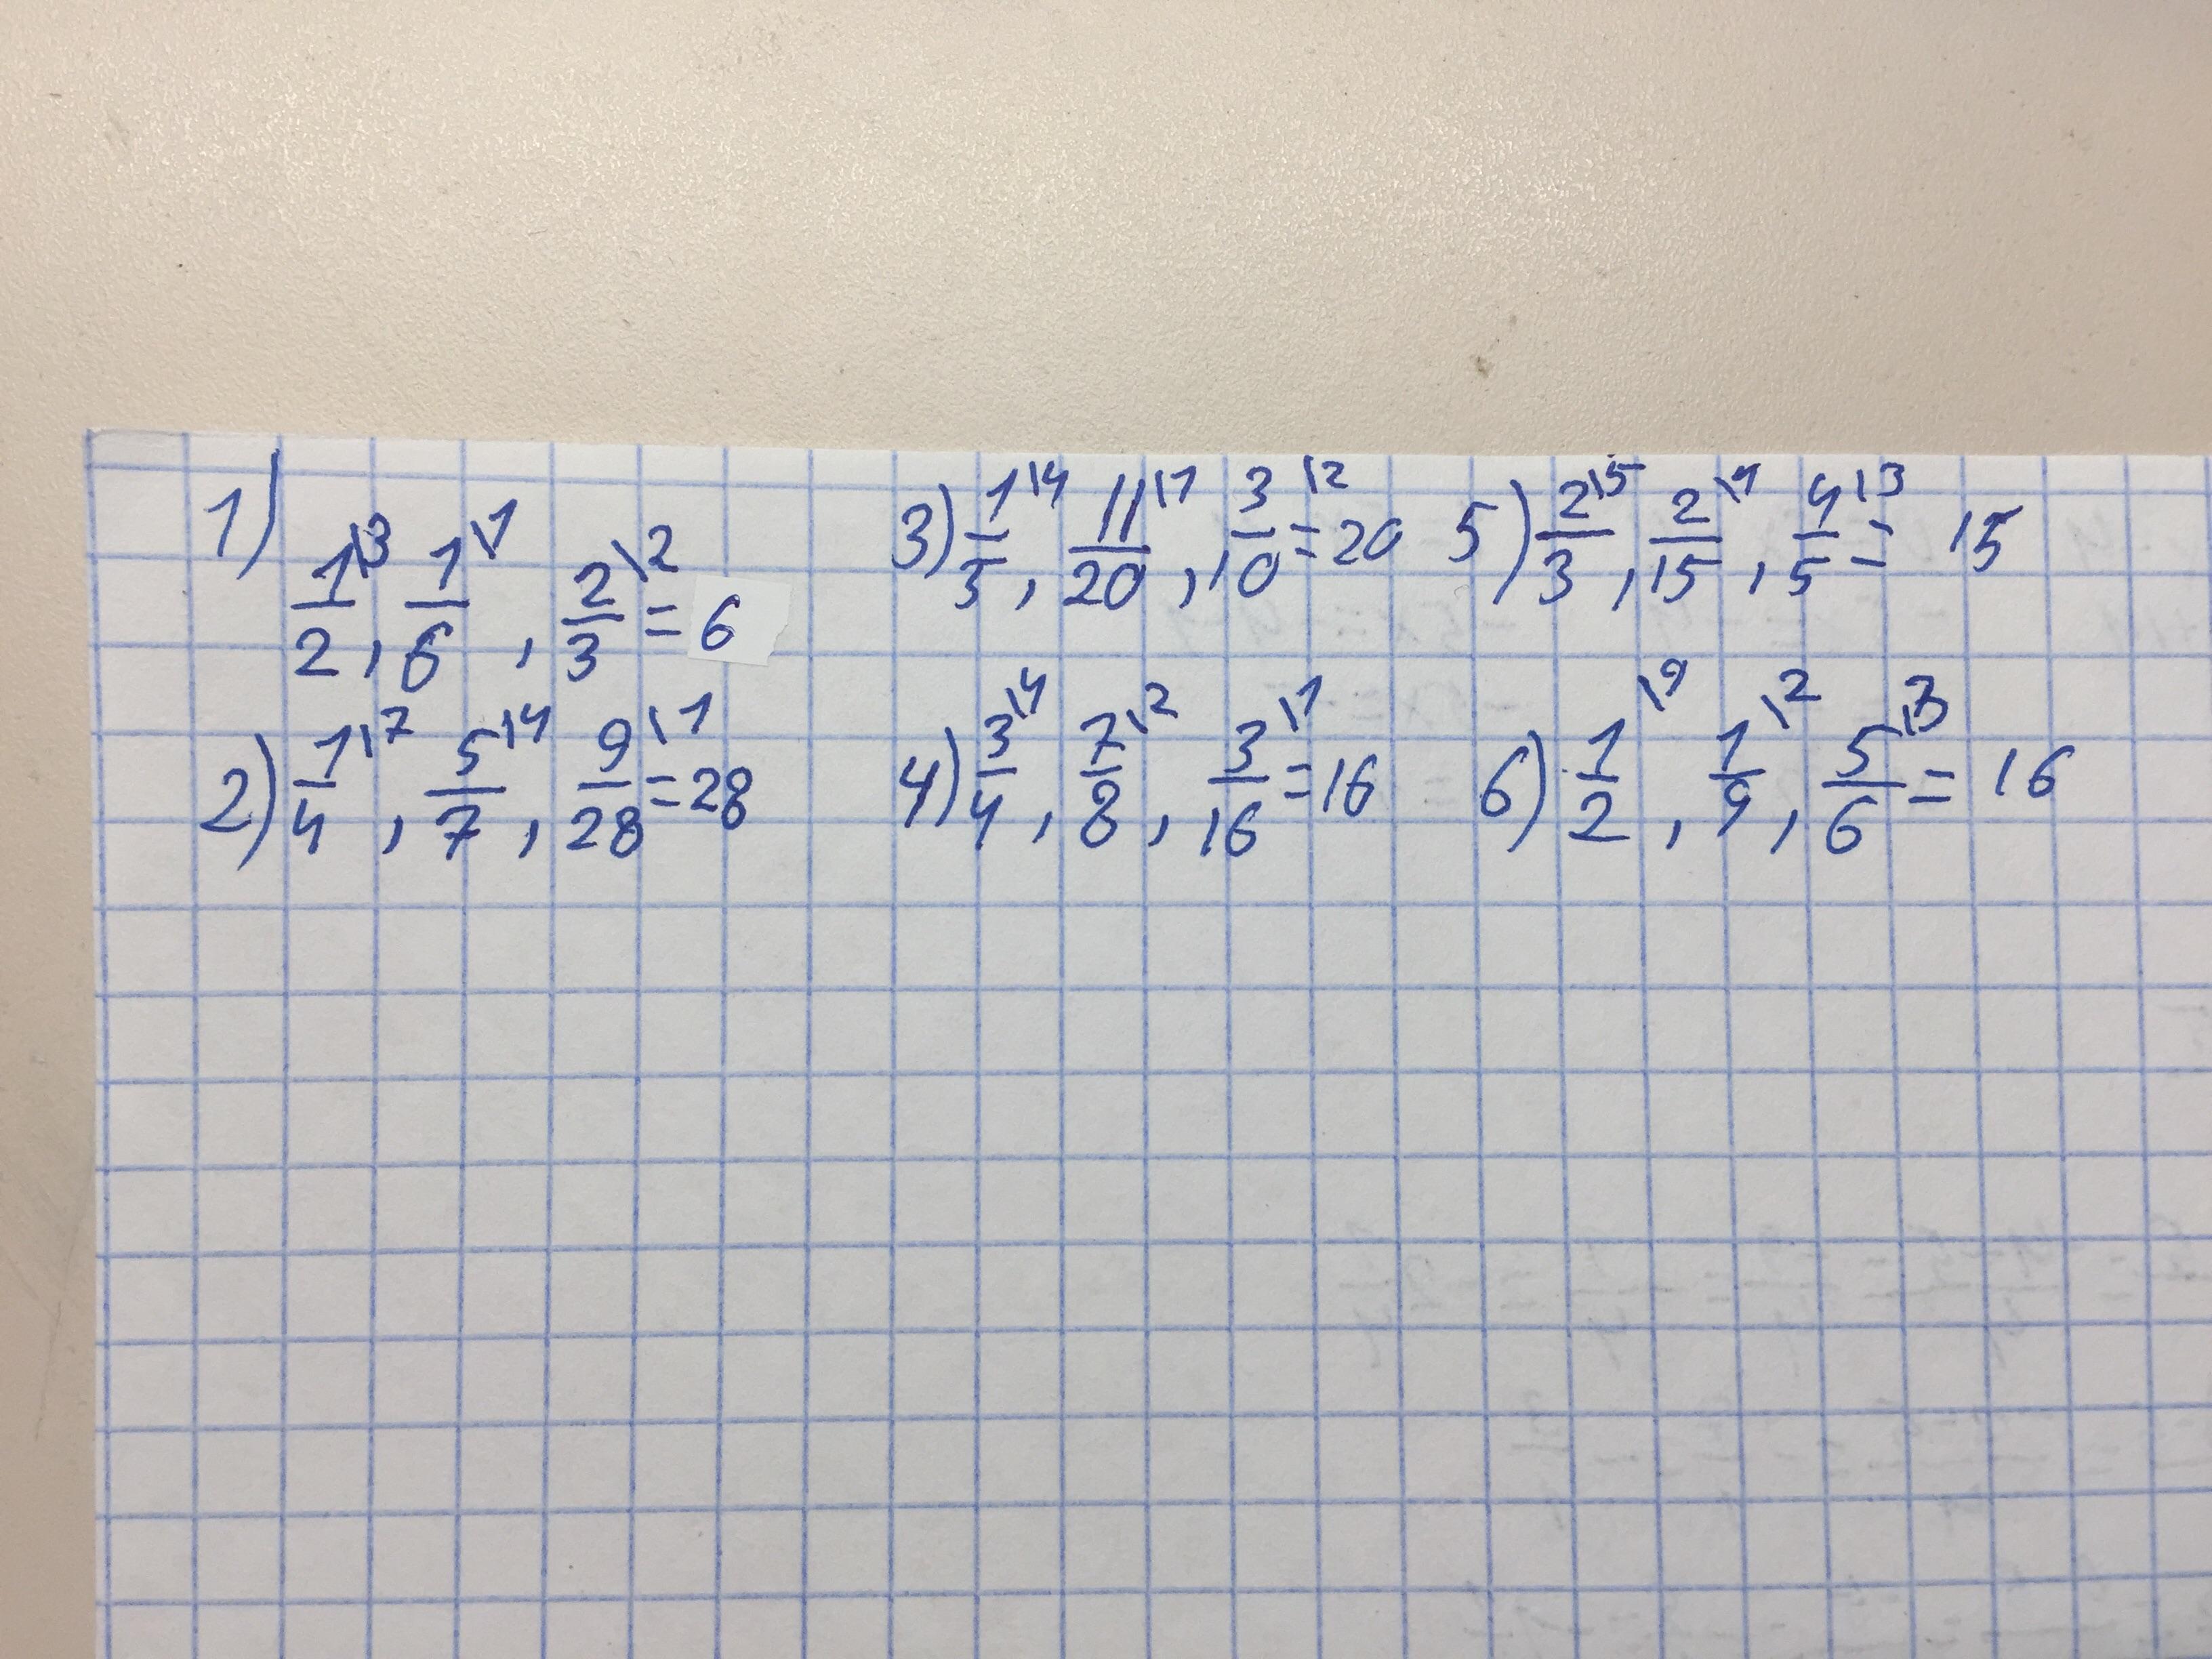 1) 1/2\3, 1/6\1, 2/3\2 = 6
2) 1/4\7, 5/7\4, 9/28\1 = 28
3) 1/5\4, 11/20\1, 3/10\2 = 20
4) 3/4\4, 7/8\2, 3/16\1 = 16
5) 2/3\5, 2/15\1, 4/5\3 = 15
6) 1/2\9, 1/9\2, 5/6\3 = 16